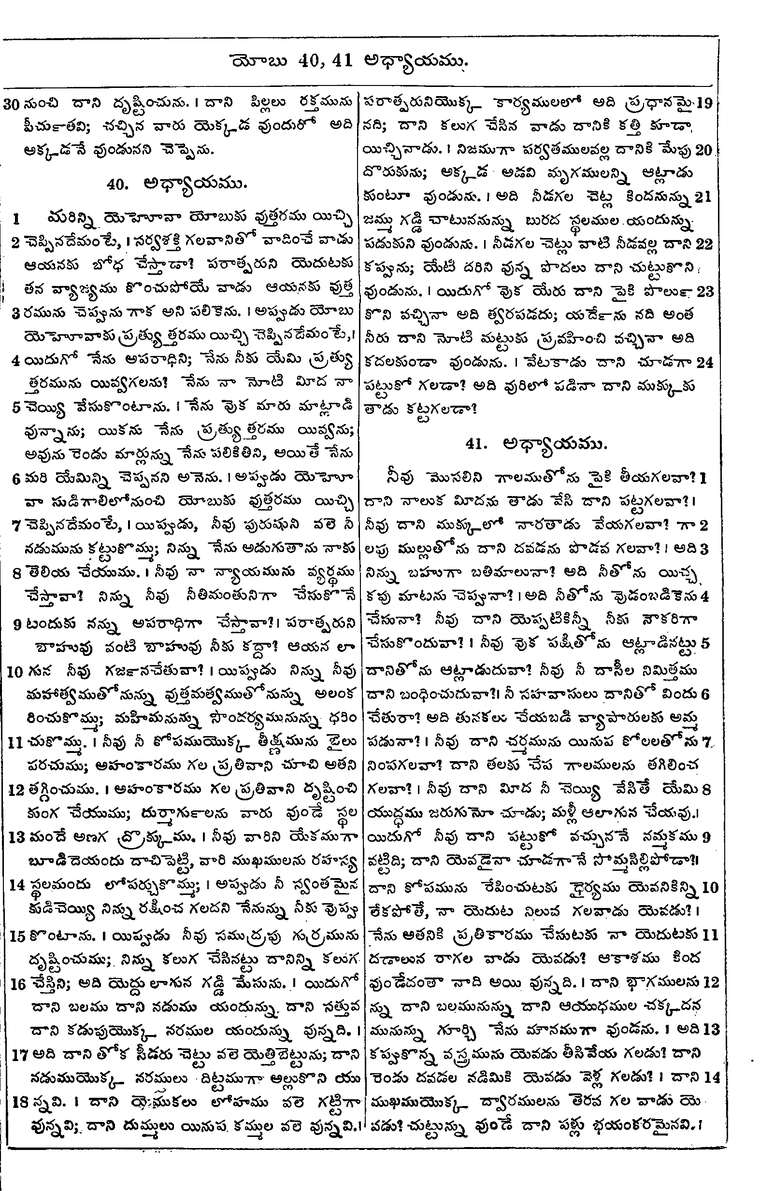 యోబు 40, 41 అధ్యాయము.
30 నుంచి దాని దృష్టించును. । దాని పిల్లలు రక్తమును
పీచుకొతవి; చచ్చిన వారు యెక్కడ వుందురో అది
అక్కడనే వుండునని చెప్పెను.
40. అధ్యాయము.
1 మరిన్ని యెహోవా యోబుకు వుత్తరము యిచ్చి
2 చెప్పినదేమంటే, । సర్వశక్తి గలవానితో వాదించే వాడు
ఆయనకు బోధ చేస్తాడా? పరాత్పరుని యెదుటకు
తన వ్యాజ్యము కొంచుపోయే వాడు ఆయనకు వుత్త
3 రమును చెప్పును గాక అని పలికెను. । అప్పుడు యోబు
యెహోవాకు ప్రత్యుత్తరము యిచ్చి చెప్పినదేమంటే, ।
4 యిదుగో నేను అపరాధిని; నేను నీకు యేమి ప్రత్యు
త్తరమును యివ్వగలను? నేను నా నోటి మీద నా
5 చెయ్యి వేసుకొంటాను. । నేను వుక మారు మాట్లాడి
వున్నాను; యికను నేను ప్రత్యుత్తరము యివ్వను;
అవును రెండు మార్లున్ను నేను పలికితిని, అయితే నేను
6 మరి యేమిన్ని చెప్పనని అనెను. । అప్పుడు యెహో
వా సుడిగాలిలోనుంచి యోబుకు వుత్తరము యిచ్చి
7 చెప్పినదేమంటే, । యిప్పుడు, నీవు పురుషుని వలె నీ
నడుమును కట్టుకొమ్ము; నిన్ను నేను అడుగుతాను నాకు
8 తెలియ చేయుము. । నీవు నా న్యాయమును వ్యర్థము
చేస్తావా? నిన్ను నీవు నీతిమంతునిగా చేసుకొనే
9 టందుకు నన్ను అపరాధిగా చేస్తావా? । పరాత్పరుని
బాహువు వంటి బాహువు నీకు కద్దా? ఆయన లా
10 గున నీవు గర్జనచేతువా? । యిప్పుడు నిన్ను నీవు
మహాత్వముతోనున్ను వుత్తమత్వముతోనున్ను అలంక
రించుకొమ్ము; మహిమనున్ను సౌందర్యమునున్ను ధరిం
11 చుకొమ్ము. । నీవు నీ కోపముయొక్క తీక్ష్ణమును బైలు
పరచుము; అహంకారము గల ప్రతివాని చూచి అతని
12 తగ్గించుము. । అహంకారము గల ప్రతివాని దృష్టించి
కుంగ చేయుము; దుర్మార్గులను వారు వుండే స్థల
13 మందే అణగ ద్రొక్కుము. । నీవు వారిని యేకముగా
బూడిదెయందు దాచిపెట్టి, వారి ముఖములను రహస్య
14 స్థలమందు లోపర్చుకొమ్ము; । అప్పుడు నీ స్వంతమైన
కుడిచెయ్యి నిన్ను రక్షించ గలదని నేనున్ను నీకు వొప్పు
15 కొంటాను. । యిప్పుడు నీవు సముద్రపు గుర్రమును
దృష్టించుము; నిన్ను కలుగ చేసినట్టు దానిన్ని కలుగ
16 చేస్తిని; అది యెద్దు లాగున గడ్డి మేసును. । యిదుగో
దాని బలము దాని నడుము యందున్ను దాని సత్తువ
దాని కడుపుయొక్క నరముల యందున్ను వున్నది. ।
17 అది దాని తోక సీడరు చెట్టు వలె యెత్తిబెట్టును; దాని
నడుముయొక్క నరములు దిట్టముగా అల్లుకొని యు
18 న్నవి. । దాని యెముకలు లోహము వలె గట్టిగా
వున్నవి; దాని దుమ్ములు యినుప కమ్ముల వలె వున్నవి. ।
పరాత్పరునియొక్క కార్యములలో అది ప్రధానమై 19
నది; దాని కలుగ చేసిన వాడు దానికి కత్తి కూడా
యిచ్చినాడు. । నిజముగా పర్వతములవల్ల దానికి మేపు 20
దొరుకును; అక్కడ అడవి మృగములన్ని ఆట్లాడు
కుంటూ వుండును. । అది నీడగల చెట్ల కిందనున్ను 21
జమ్ము గడ్డి చాటుననున్ను బురద స్థలముల యందున్ను
పడుకుని వుండును. । నీడగల చెట్లు వాటి నీడవల్ల దాని 22
కప్పును; యేటి దరిని వున్న పొదలు దాని చుట్టుకొని
వుండును. । యిదుగో వుక యేరు దాని పైకి పొర్లు 23
కొని వచ్చినా అది త్వరపడదు; యర్దెను నది అంత
నీరు దాని నోటి మట్టుకు ప్రవహించి వచ్చినా అది
కదలకుండా వుండును. । వేటకాడు దాని చూడగా 24
పట్టుకో గలడా? అది వురిలో పడినా దాని ముక్కుకు
తాడు కట్టగలడా?
41. అధ్యాయము.
నీవు మొసలిని గాలముతోను పైకి తీయగలవా? 1
దాని నాలుక మీదను తాడు వేసి దాని పట్టగలవా? ।
నీవు దాని ముక్కులో నారతాడు వేయగలవా? గా 2
లపు ముల్లుతోను దాని దవడను పొడవ గలవా? । అది 3
నిన్ను బహుగా బతిమాలునా? అది నీతోను యిచ్చ
కపు మాటను చెప్పునా? । అది నీతోను వుడంబడికెను 4
చేసునా? నీవు దాని యెప్పటికిన్నీ నీకు నౌకరిగా
చేసుకొందువా? । నీవు వుక పక్షితోను ఆట్లాడినట్టు 5
దానితోను ఆట్లాడుదువా? నీవు నీ దాసీల నిమిత్తము
దాని బంధించుదువా? । నీ సహవాసులు దానితో విందు 6
చేతురా? అది తునకలు చేయబడి వ్యాపారులకు అమ్మ
పడునా? । నీవు దాని చర్మమును యినుప కోలలతోను 7
నింపగలవా? దాని తలకు చేప గాలములను తగిలించ
గలవా? । నీవు దాని మీద నీ చెయ్యి వేసితే యేమి 8
యుద్ధము జరుగునో చూడు; మళ్లీ ఆలాగున చేయవు. ।
యిదుగో నీవు దాని పట్టుకో వచ్చుననే నమ్మకము 9
వట్టిది; దాని యెవడైనా చూడగానే సొమ్మసిల్లిపోడా? ।
దాని కోపమును రేపించుటకు ధైర్యము యెవనికిన్ని 10
లేకపోతే, నా యెదుట నిలువ గలవాడు యెవడు? ।
నేను అతనికి ప్రతికారము చేసుటకు నా యెదుటకు 11
దణాలున రాగల వాడు యెవడు? ఆకాశము కింద
వుండేదంతా నాది అయి వున్నది. । దాని భాగములను 12
న్ను దాని బలమునున్ను దాని ఆయుధముల చక్కదన
మునున్ను గూర్చి నేను మౌనముగా వుండను. । అది 13
కప్పుకొన్న వస్త్రమును యెవడు తీసివేయ గలడు? దాని
రెండు దవడల నడిమికి యెవడు వెళ్ల గలడు? । దాని 14
ముఖముయొక్క ద్వారములను తెరవ గల వాడు యె
వడు? చుట్టున్ను వుండే దాని పళ్లు భయంకరమైనవి. ।